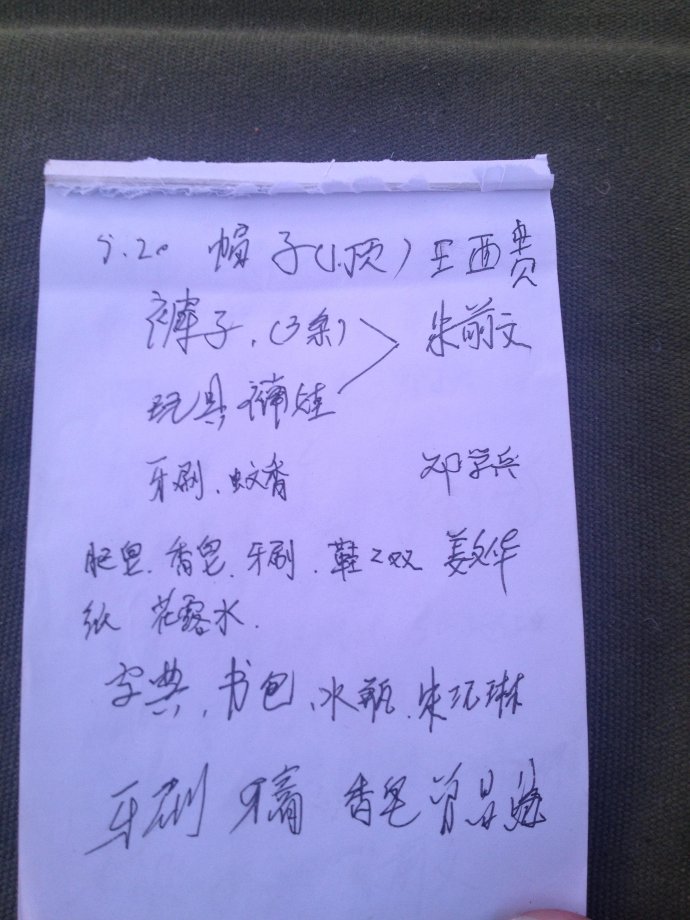 5.20 帽子(1顶) 王西贵
裤子.(3条) 朱前文
玩具 裤娃
牙刷.蚊香 邓学兵
肥皂.香皂.牙刷.鞋2双 姜文华
纸 花露水.
字典.书包.水瓶.朱玩琳
牙刷 牙膏 香皂 曾昌